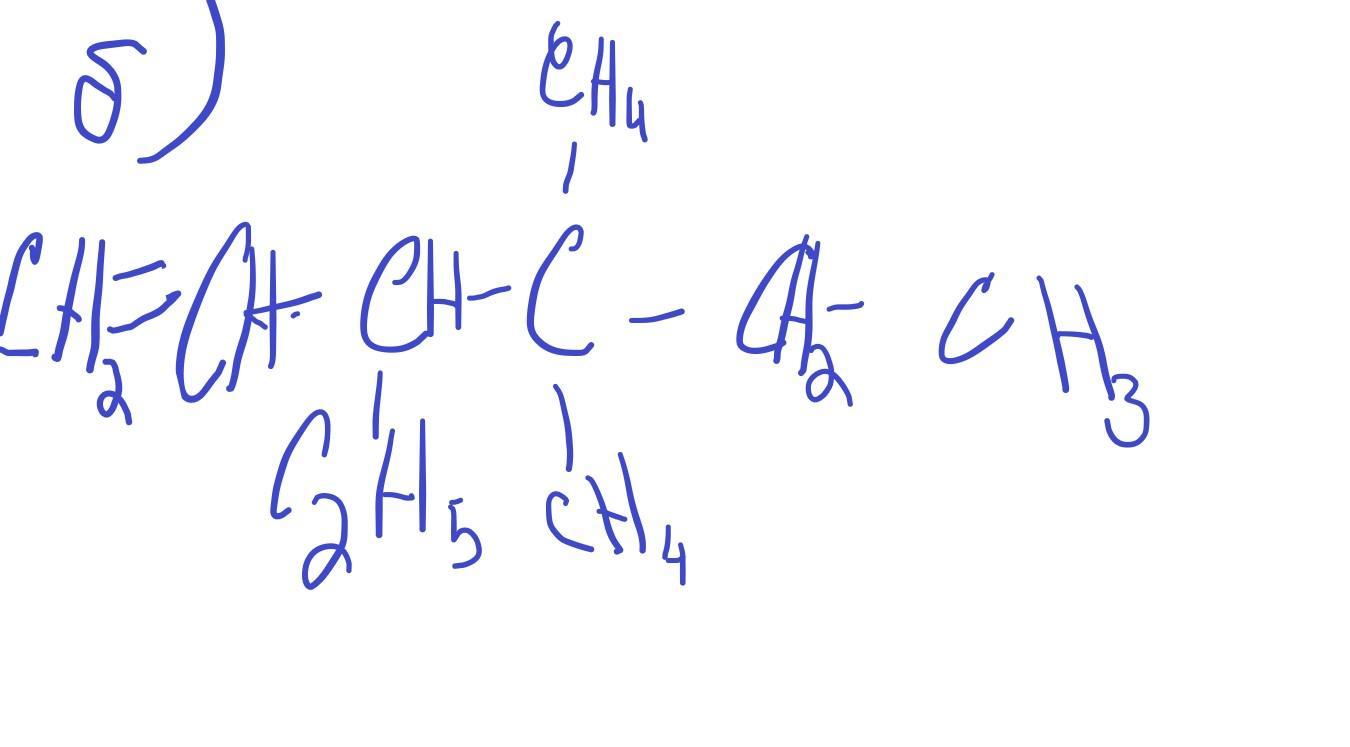 б)
CH4
CH2=CH-CH-C-CH2-CH3
C2H5 CH4